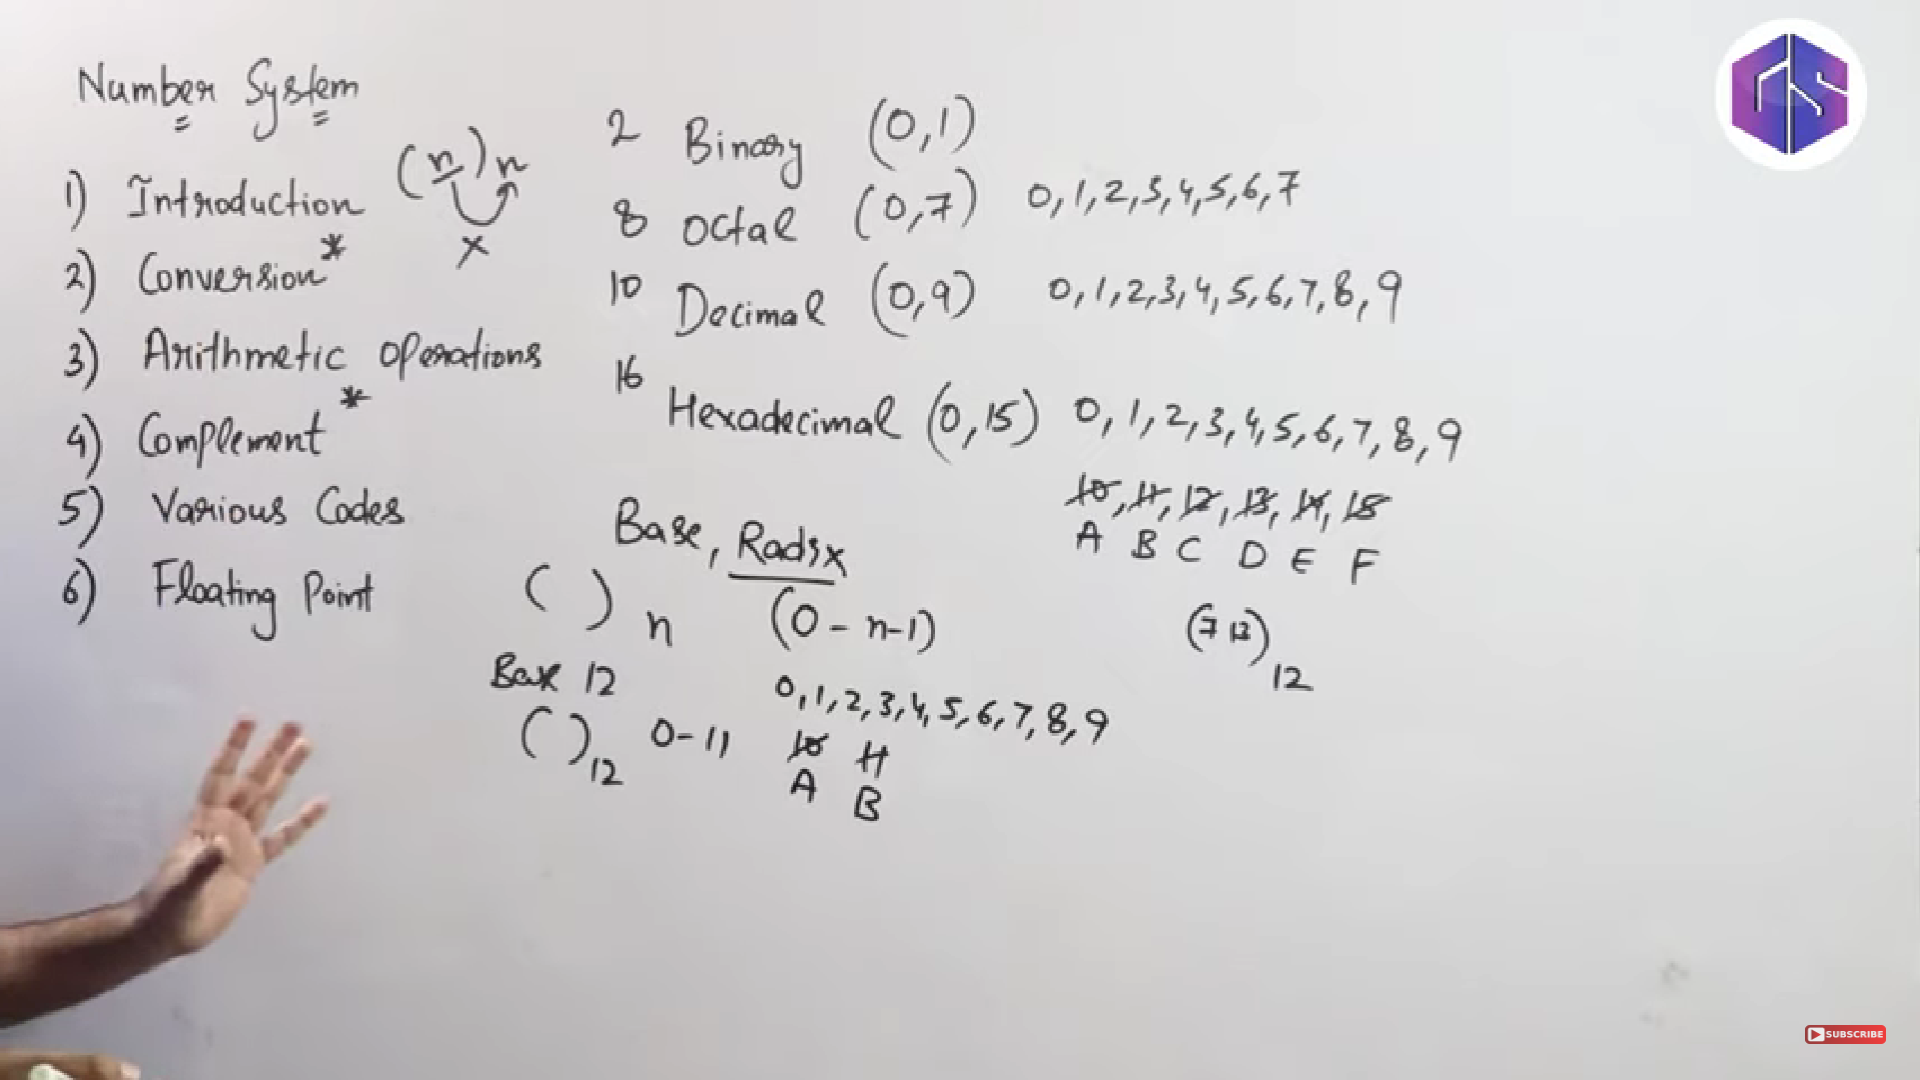 Number System
1) Introduction (n)n
x
2) Conversion *
3) Arithmetic operations
4) Complement *
5) Various Codes
6) Floating Point
2 Binary (0,1)
8 Octal (0,7) 0,1,2,3,4,5,6,7
10 Decimal (0,9) 0,1,2,3,4,5,6,7,8,9
16 Hexadecimal (0,15) 0,1,2,3,4,5,6,7,8,9
10, 11, 12, 13, 14, 15
A B C D E F
Base, Radix
( )n (0-n-1)
Base 12 0,1,2,3,4,5,6,7,8,9
( )12 0-11 10 11
A B
(7 12)12
GS
SUBSCRIBE